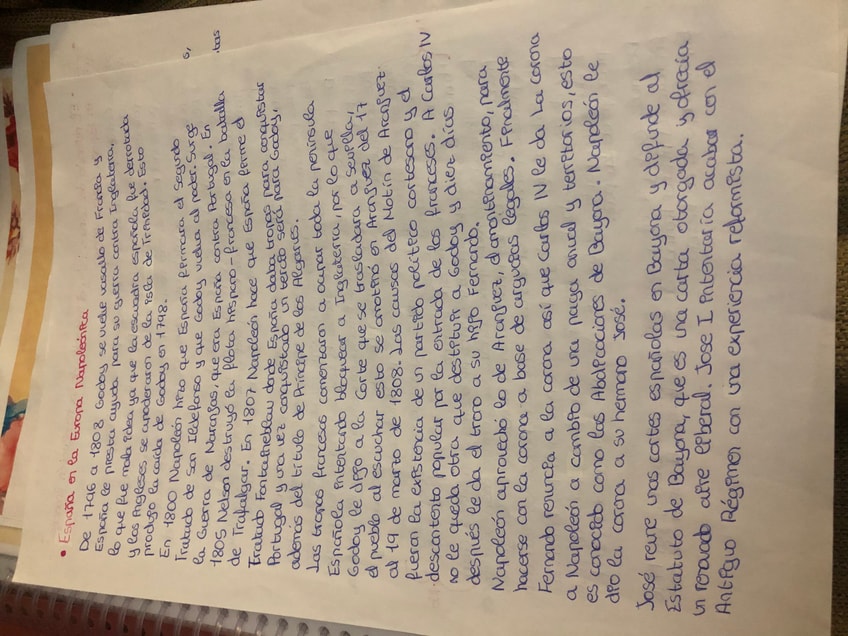 • España en la Europa Napoleónica
De 1796 a 1808 Godoy se vuelve vasallo de Francia y
España le presta ayuda para su guerra contra Inglaterra,
lo que fue mala idea ya que la escuadra española fue derrotada
y los ingleses se apoderaron de la isla de Trinidad. Esto
produjo la caída de Godoy en 1798.
En 1800 Napoleón hizo que España firmara el Segundo
Tratado de San Ildefonso y que Godoy vuelva al poder. Surge
la Guerra de Naranjas, que era España contra Portugal. En
1805 Nelson destruyó la flota hispano-francesa en la batalla
de Trafalgar. En 1807 Napoleón hace que España firme el
Tratado Fontainebleau donde España daba tropas para conquistar
Portugal y una vez conquistado un tercio será para Godoy,
además del título de Príncipe de los Algarves.
Las tropas francesas comenzaron a ocupar toda la península
Española intentando bloquear a Inglaterra, por lo que
Godoy le dijo a la Corte que se trasladara a Sevilla,
el pueblo al escuchar esto se amotinó en Aranjuez del 17
al 19 de marzo de 1808. Las causas del Motín de Aranjuez
fueron la existencia de un partido político cortesano y el
descontento popular por la entrada de los franceses. A Carlos IV
no le queda otra que destituir a Godoy y diez días
después le da el trono a su hijo Fernando.
Napoleón aprovechó lo de Aranjuez, el amotinamiento, para
hacerse con la corona a base de argucias legales. Finalmente
Fernando renuncia a la corona así que Carlos IV le da la corona
a Napoleón a cambio de una paga anual y territorios, esto
es conocido como las Abdicaciones de Bayona. Napoleón le
dio la corona a su hermano José.
José reúne unas cortes españolas en Bayona y difunde al
Estatuto de Bayona, que es una carta otorgada y ofrecía
un renovado aire liberal. Jose I intentaría acabar con el
Antiguo Régimen con una experiencia reformista.